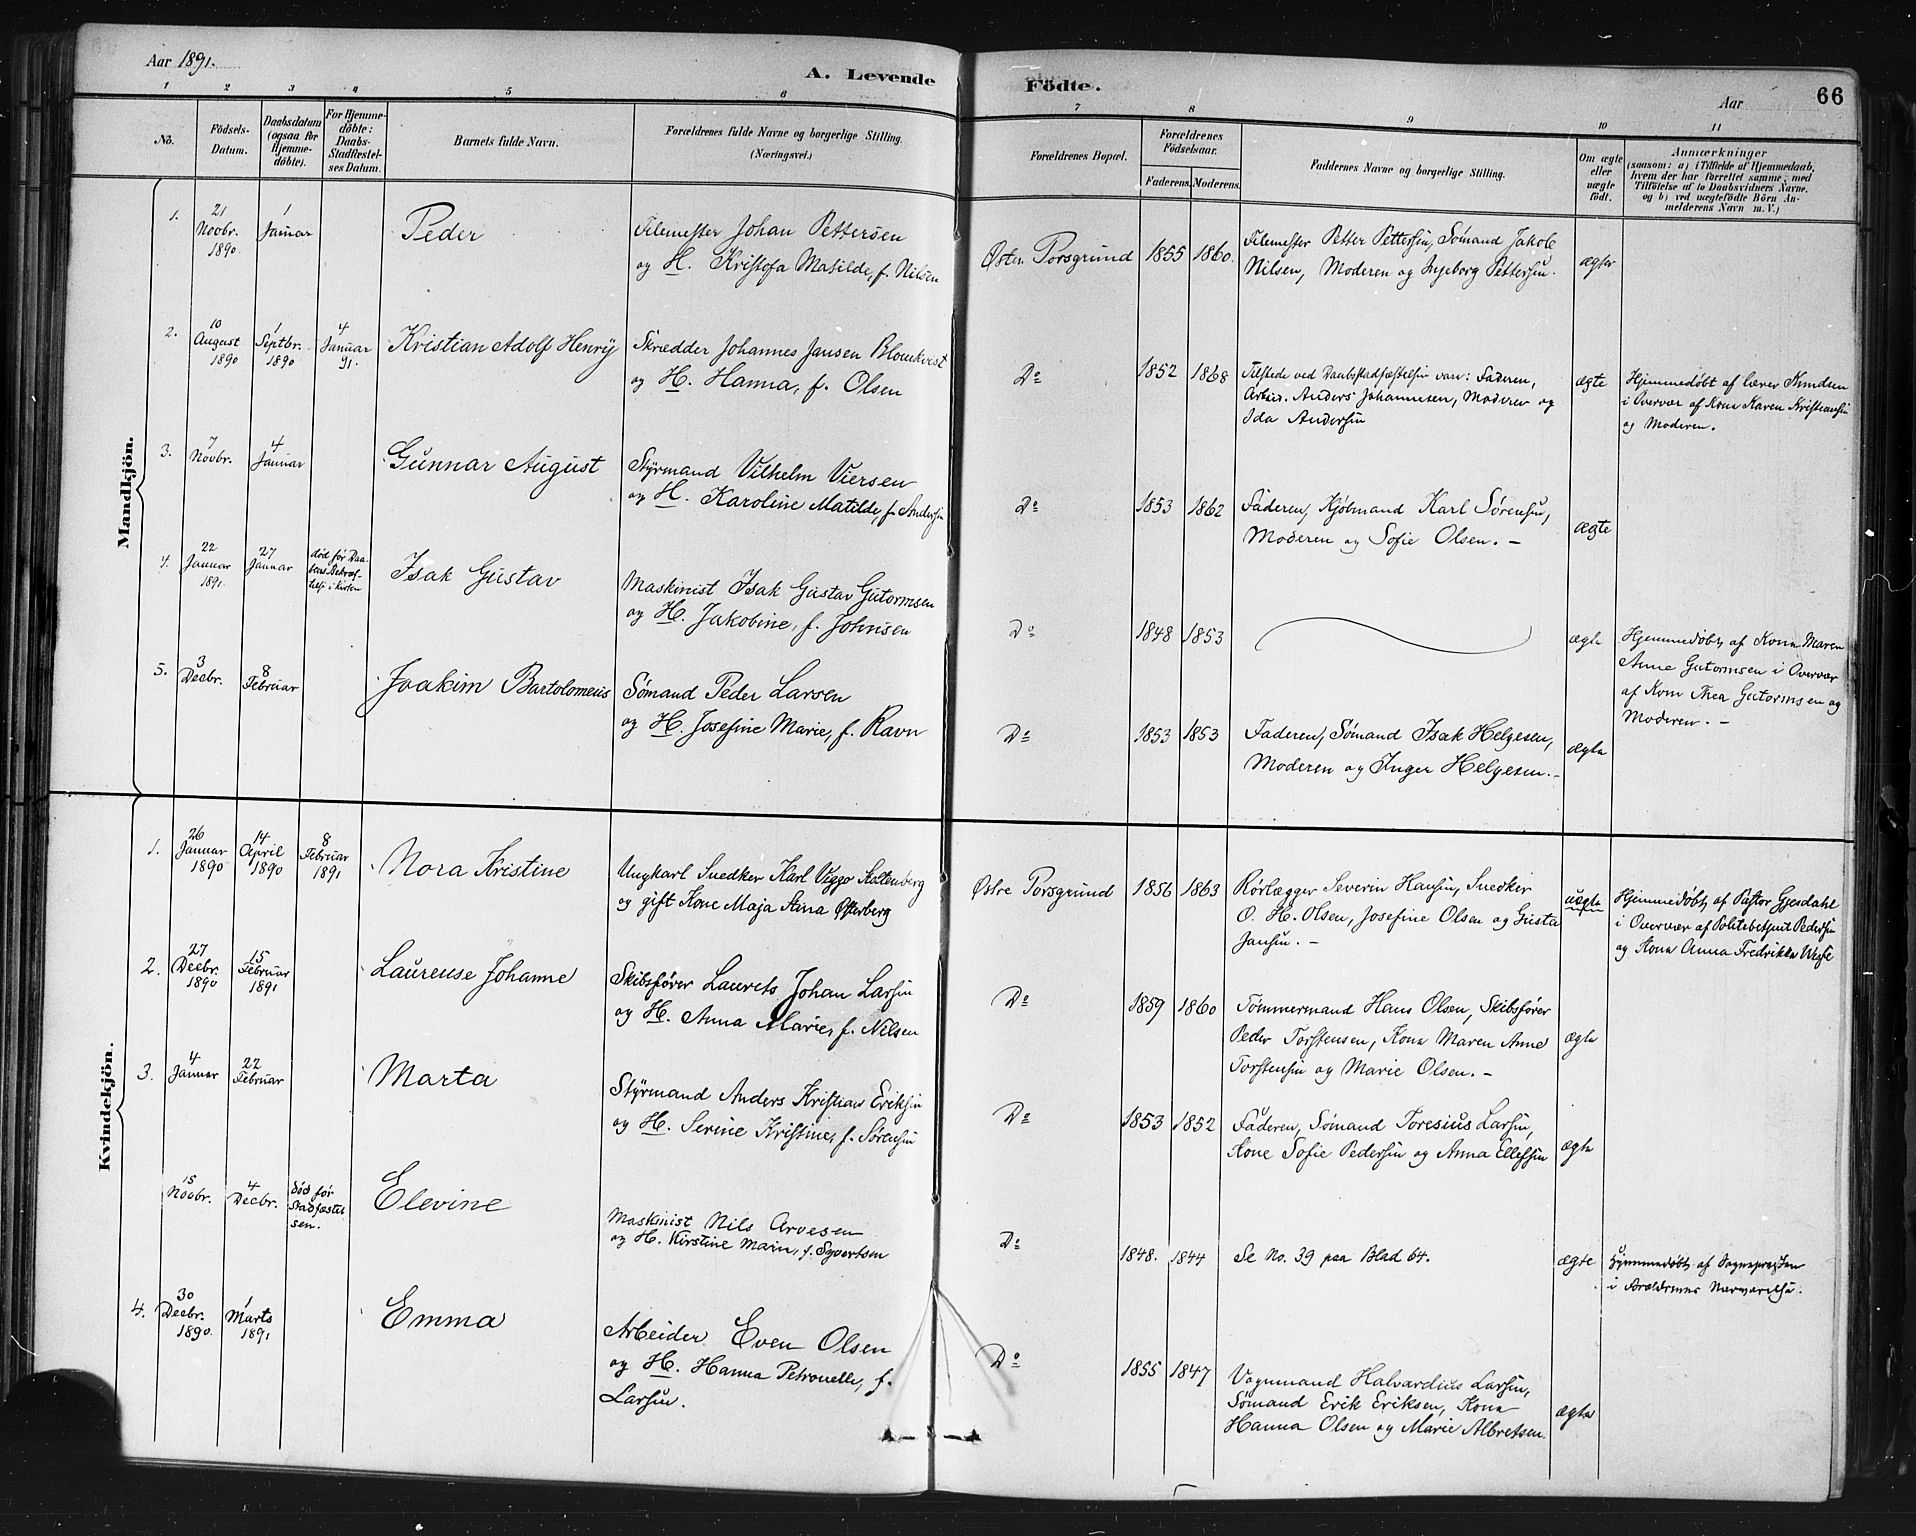 Aar 1891.
A. Levende
Födte.
Aar
66
1 2 3 4 5 6 7 8 9 10 11
No.
Födsels-
Datum.
Daabsdatum
(ogsaa for
Hjemme-
döbte).
For Hjemme-
döbte:
Daabs-
Stadfæstel-
ses Datum.
Barnets fulde Navn.
Forældrenes fulde Navne og borgerlige Stilling.
(Næringsvei.)
Forældrenes Bopæl.
Forældrenes
Födselsaar.
Faderens. Moderens.
Faddernes Navne og borgerlige Stilling.
Om ægte
eller
uægte
födt.
Anmærkninger
(saasom: a) i Tilfælde af Hjemmedaab,
hvem der har forrettet samme, med
Tilföielse af to Daabsvidners Navne,
og b) ved uægtefödte Börn An-
melderens Navn m. V.)
Mandkjön.
1.
21
Novbr.
1890.
1
Januar
Peder
Filemester Johan Pettersen
og H. Kristofa Matilde, f. Nilsen
Østre Porsgrund
1855 1860.
Filemester Petter Pettersen, Sømand Jakob
Nilsen, Moderen og Ingeborg Pettersen.
ægte
2.
10
August
1890
1
Septbr.
1890
4
Januar
91.
Kristian Adolf Henry
Skrædder Johannes Jansen Blomkvist
og H. Hanna, f. Olsen
Do
1852 1868
Tilstede ved Daabsstadfæstelsen vare: Faderen,
Arbeid. Anders Johannesen, Moderen og
Ida Andersen
ægte
Hjemmedøbt af lærer Knudsen
i Overvær af Kone Karen Kristiansen
og Moderen.
3.
7
Novbr.
4
Januar
Gunnar August
Styrmand Vilhelm Viersen
og H. Karoline Matilde, f. Andersen
Do
1853 1862
Faderen, Kjøbmand Karl Sørensen,
Moderen og Sofie Olsen. –
ægte
4.
22
Januar
1891.
27
Januar
død før Daa-
bens Bekræf-
telse i kirken
Isak Gustav
Maskinist Isak Gustav Gutormsen
og H. Jakobine, f. Johnsen
Do
1848 1853
ægte
Hjemmedøbt af Kone Maren
Anne Gutormsen i Overvær
af Kone Thea Gutormsen og
Moderen. –
5.
3
Decbr.
8
Februar
Joakim Bartolomeus
Sømand Peder Larsen
og H. Josefine Marie, f. Ravn
Do
1853 1853
Faderen, Sømand Isak Helgesen,
Moderen og Inger Helgesen. –
ægte
Kvindekjön.
1.
26
Januar
1890
14
April
1890
8
Februar
1891
Nora Kristine
Ungkarl Snedker Karl Viggo Stoltenberg
og gift Kone Maja Stina Østerberg
Østre Porsgrund
1856 1863
Rørlægger Severin Hansen, Snedker
O. H. Olsen, Josefine Olsen og Gusta
Jansen. –
uægte
Hjemmedøbt af Pastor Gjesdahl
i Overvær af Politibetjent Pedersen
og Kone Anna Fredrikke
2.
27
Decbr.
1890
15
Februar
1891
Laurense Johanne
Skibsfører Laurits Johan Larsen
og H. Anna Marie, f. Nilsen
Do
1859 1860
Tømmermand Hans Olsen, Skibsfører
Peder Torstensen, Kone Maren Anne
Torstensen og Marie Olsen. –
ægte
3.
4
Januar
22
Februar
Marta
Styrmand Anders Kristian Eriksen
og H. Serine Kristine, f. Sørensen
Do
1853 1852
Faderen, Sømand Toresius Larsen,
Kone Sofie Pedersen og Anna Ellefsen
ægte
15
Novbr.
4
Decbr.
død før
Stadfæstel-
sen.
Elevine
Maskinist Nils Arvesen
og H. Kirstine Marie, f. Syvertsen
Do
1848. 1844
Se No. 39 paa Blad 64.
ægte
Hjemmedøbt af Sognepresten
i Forældrenes Nærværelse.
4.
30
Decbr.
1890.
1
Marts
1891
Emma
Arbeider Even Olsen
og H. Hanna Petronelle, f.
Larsen.
Do
1855 1847
Vognmand Halvardius Larsen,
Sømand Erik Eriksen, Kone
Hanna Olsen og Marie Albretsen.
ægte